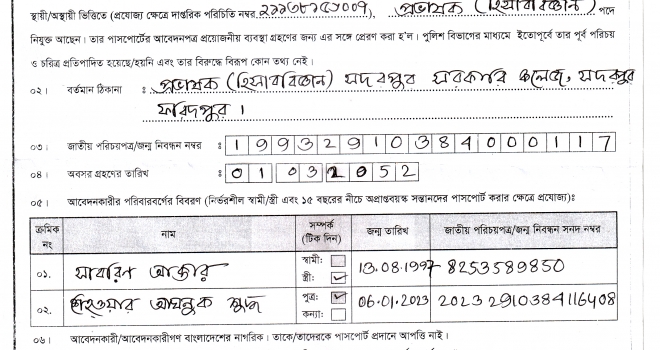 স্থায়ী/অস্থায়ী ভিত্তিতে (প্রযোজ্য ক্ষেত্রে দাপ্তরিক পরিচিতি নম্বর প্রভাষক (হিসাববিজ্ঞান) পদে
নিযুক্ত আছেন। তার পাসপোর্টের আবেদনপত্র প্রয়োজনীয় ব্যবস্থা গ্রহণের জন্য এর সঙ্গে প্রেরণ করা হ'ল। পুলিশ বিভাগের মাধ্যমে ইতোপূর্বে তার পূর্ব পরিচয়
ও চরিত্র প্রতিপাদিত হয়েছে/হয়নি এবং তার বিরুদ্ধে বিরূপ কোন তথ্য নেই।
০২। বর্তমান ঠিকানা : প্রভাষক (হিসাববিজ্ঞান) সদরপুর সরকারি কলেজ, সদরপুর
ফরিদপুর।
০৩। জাতীয় পরিচয়পত্র/জন্ম নিবন্ধন নম্বর : 19932910384000117
০৪। অবসর গ্রহণের তারিখ : 01 03 2052
০৫। আবেদনকারীর পরিবারবর্গের বিবরণ (নির্ভরশীল স্বামী/স্ত্রী এবং ১৫ বছরের নীচে অপ্রাপ্তবয়স্ক সন্তানদের পাসপোর্ট করার ক্ষেত্রে প্রযোজ্য):
ক্রমিক নং নাম সম্পর্ক (টিক দিন) জন্ম তারিখ জাতীয় পরিচয়পত্র/জন্ম নিবন্ধন সনদ নম্বর
০১. সাবরিন আক্তার স্বামী: স্ত্রী: ✓ 13.08.1997 8253589850
০২. পুত্র: ✓ কন্যা: 06.01.2023 20232910384116408
০৬। আবেদনকারী/আবেদনকারীগণ বাংলাদেশের নাগরিক। তাকে/তাদেরকে পাসপোর্ট প্রদানে আপত্তি নাই।